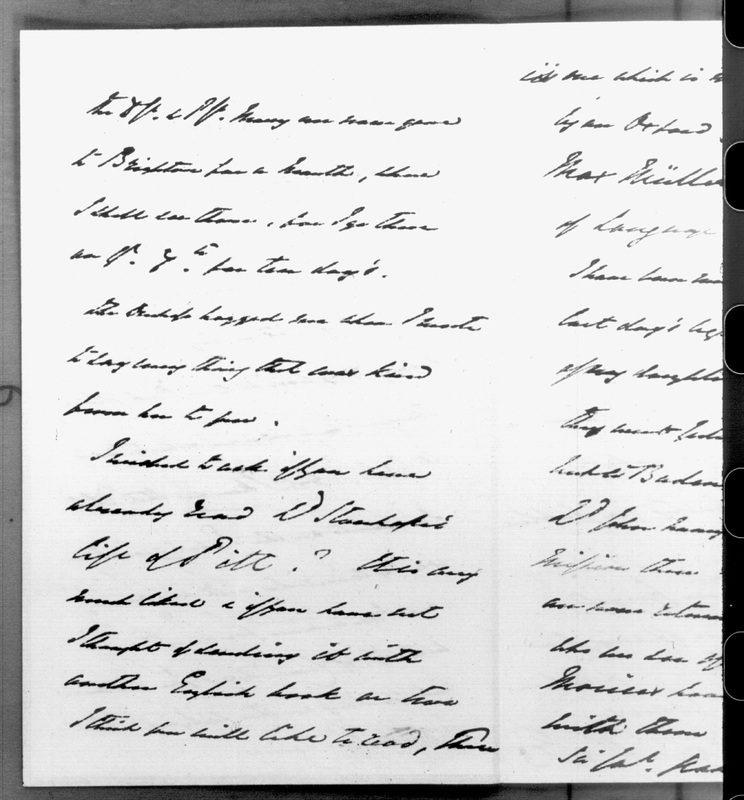 the D's. & P's. Mary are now gone
to Brighton for a month, where
I shall see them, for I go there
on 7th for ten day's.
the begged me when I wrote
to say every thing that was kind
from her to you.
I wished to ask if you have
already read Ld Stanhope's
Life of Pitt? It is very
much liked & if you have not
I thought of sending it with
another English book or two
I think you will like to read, there
is one which is
by an Oxford
Max Müller
of Language
I have been
last day's
of my daughter
they went
to Baden
Ld John
Mission there
are now
who are
Mouiex
with them